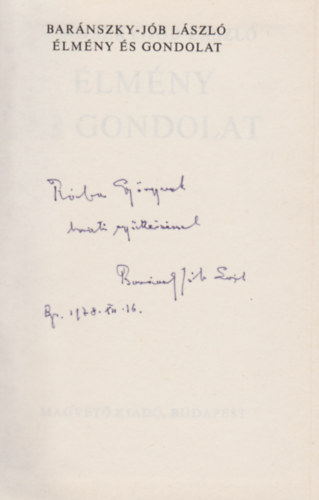 BARÁNSZKY-JÓB LÁSZLÓ
ÉLMÉNY ÉS GONDOLAT
ÉLMÉNY
GONDOLAT
Rába Györgynek
baráti
Baránszky Jób László
Bp. 1978. XII. 16.
MAGVETŐ KIADÓ, BUDAPEST